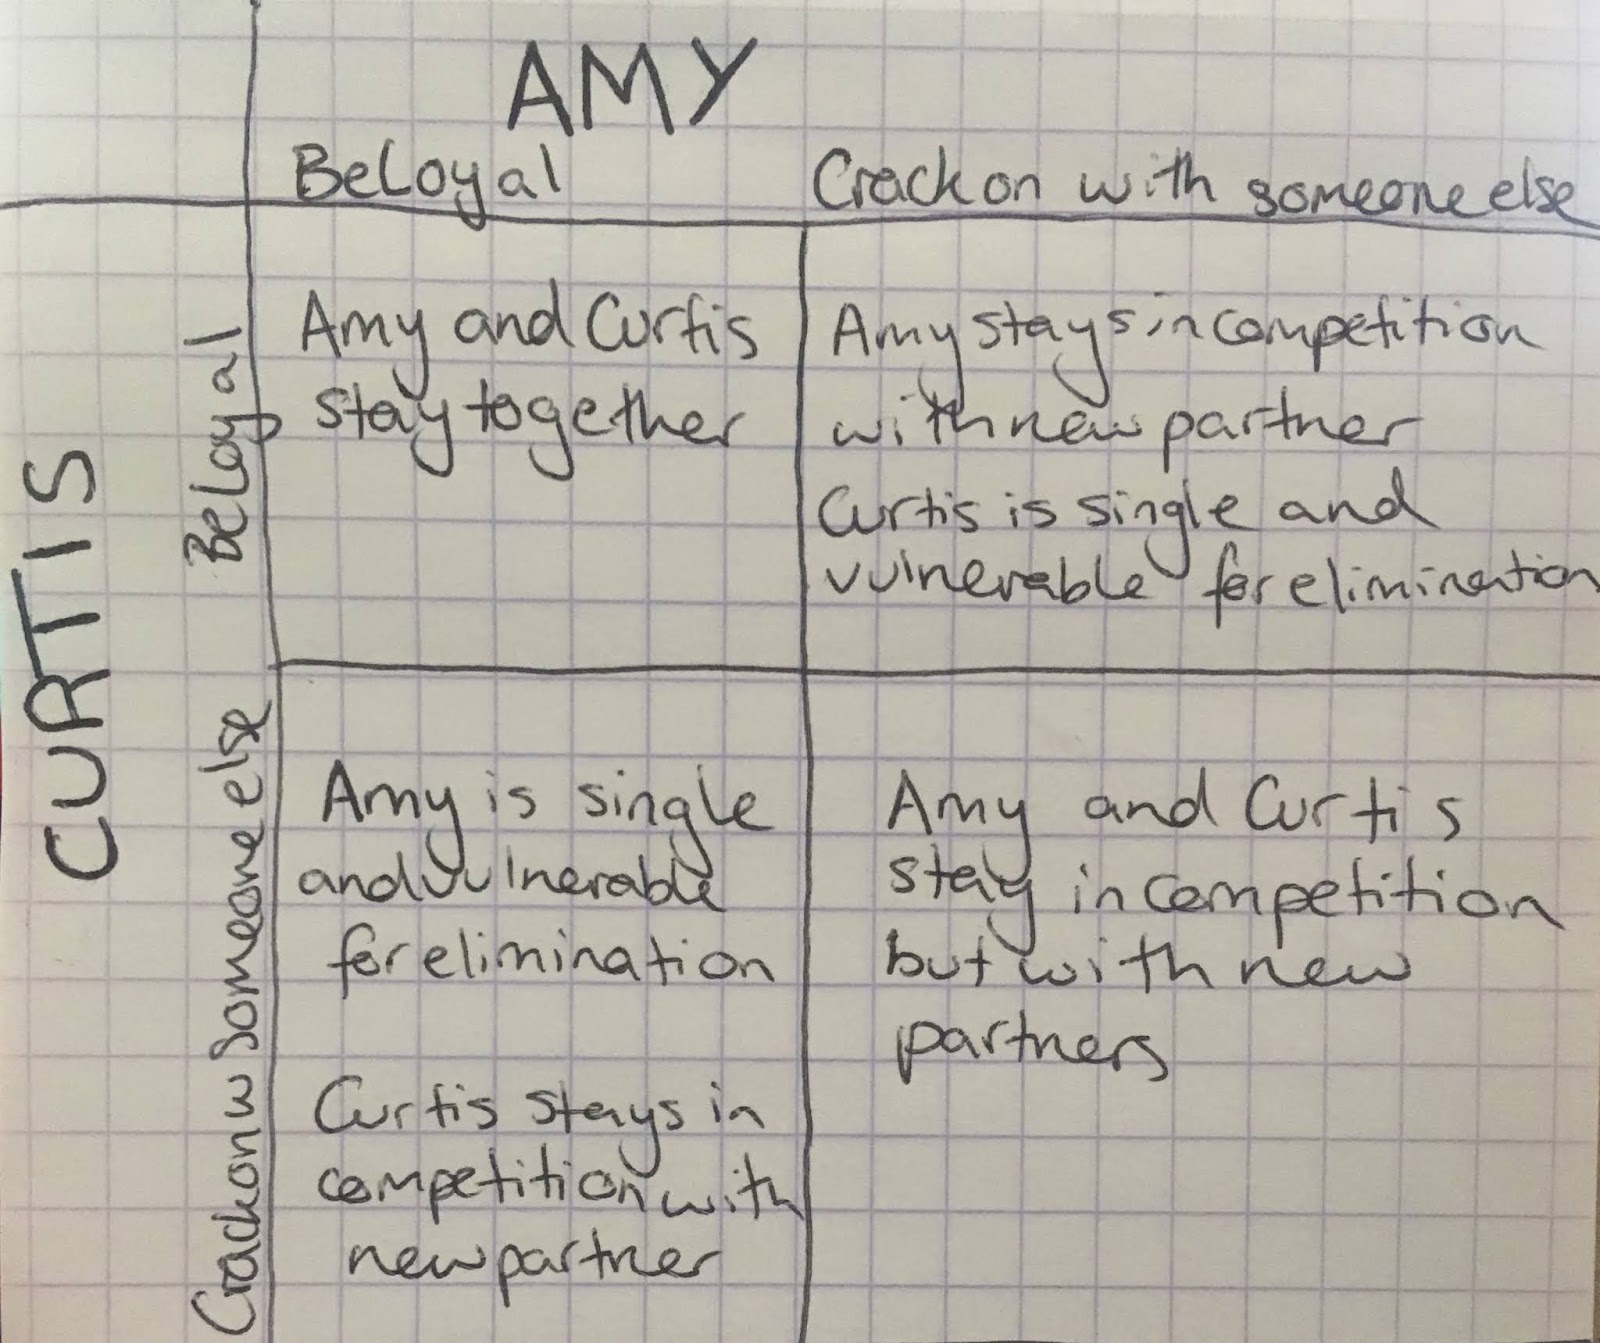 AMY
Be Loyal
Crack on with someone else
CURTIS
Be Loyal
Amy and Curtis
stay together
Amy stays in competition
with new partner
Curtis is single and
vulnerable for elimination
Crack on w someone else
Amy is single
and vulnerable
for elimination
Curtis stays in
competition with
new partner
Amy and Curtis
stay in competition
but with new
partners